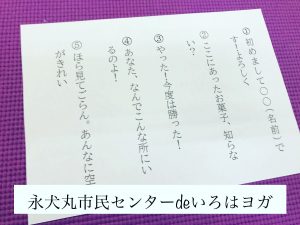 ①初めまして○○(名前)で
す!よろしく
②ここにあったお菓子、知らな
い?
③やった!今度は勝った!
④あなた、なんでこんな所にい
るのよ!
⑤ほら見てごらん。あんなに空
がきれい
永犬丸市民センターdeいろはヨガ